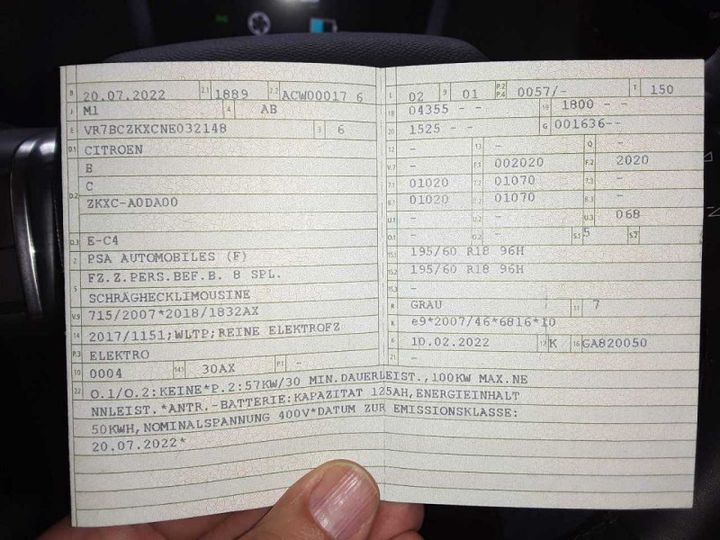 B 20.07.2022 2.1 1889 2.2 ACW00017 6
J M1 4 AB
E VR7BCZKXCNE032148 3 6
D.1 CITROEN
B
D.2 C
ZKXC-A0DA00
D.3 E-C4
2 PSA AUTOMOBILES (F)
5 FZ.Z.PERS.BEF.B. 8 SPL.
SCHRÄGHECKLIMOUSINE
V.9 715/2007*2018/1832AX
14 2017/1151;WLTP;REINE ELEKTROFZ
P.3 ELEKTRO
10 0004 14.1 30AX P.1 -
22 O.1/O.2:KEINE*P.2:57KW/30 MIN.DAUERLEIST.,100KW MAX.NE
NNLEIST.*ANTR.-BATTERIE:KAPAZITAT 125AH,ENERGIEINHALT
50KWH,NOMINALSPANNUNG 400V*DATUM ZUR EMISSIONSKLASSE:
20.07.2022*
L 02 9 01 P.2 P.4 0057/- T 150
18 04355 - - 19 1800 - -
20 1525 - - G 001636--
12 - 13 - Q -
V.7 - F.1 002020 F.2 2020
7.1 01020 7.2 01070 7.3 -
8.1 01020 8.2 01070 8.3 -
U.1 - U.2 - U.3 068
O.1 - O.2 - S.1 5 S.2
15.1 195/60 R18 96H
15.2 195/60 R18 96H
15.3 -
R GRAU 11 7
K e9*2007/46*6816*10
6 10.02.2022 17 K 16 GA820050
21 -